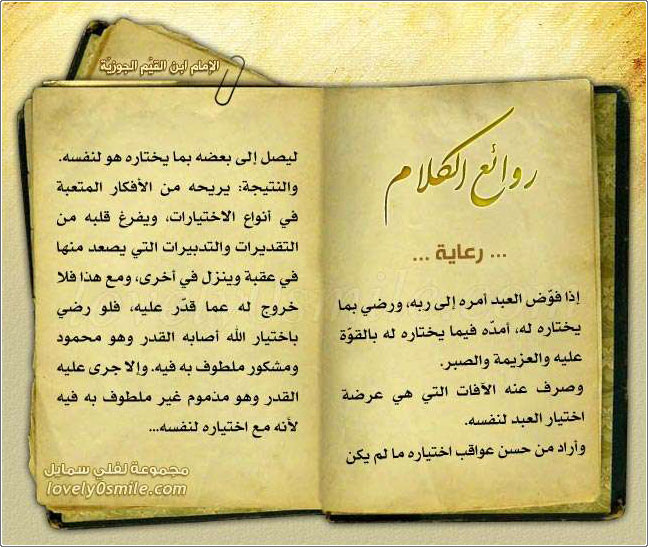 الإمام ابن القيّم الجوزيّة
روائع الكلام
... رعاية ...
إذا فوّض العبد أمره إلى ربه، ورضي بما
يختاره له، أمدّه فيما يختاره له بالقوّة
عليه والعزيمة والصبر.
وصرف عنه الآفات التي هي عرضة
اختيار العبد لنفسه.
وأراد من حسن عواقب اختياره ما لم يكن
ليصل إلى بعضه بما يختاره هو لنفسه.
والنتيجة: يريحه من الأفكار المتعبة
في أنواع الاختيارات، ويفرغ قلبه من
التقديرات والتدبيرات التي يصعد منها
في عقبة وينزل في أخرى، ومع هذا فلا
خروج له عما قدّر عليه، فلو رضي
باختيار الله أصابه القدر وهو محمود
ومشكور ملطوف به فيه. وإلا جرى عليه
القدر وهو مذموم غير ملطوف به فيه
لأنه مع اختياره لنفسه...
مجموعة لفلي سمايل
lovely0smile.com